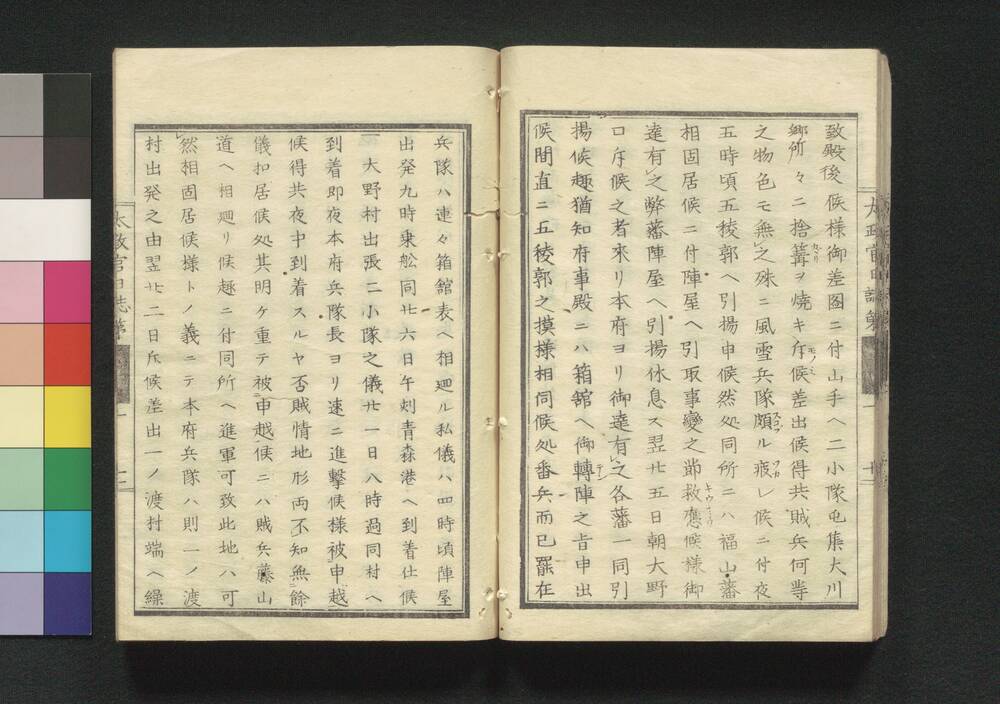 致殿後候様御差図ニ付山手ヘ二小隊屯集大川
郷所々ニ捨篝ヲ焼キ斥候差出候得共賊兵何等
之物色モ無之殊ニ風雪兵隊頗ル疲レ候ニ付夜
五時頃五稜郭ヘ引揚申候然処同所ニハ福山藩
相固居候ニ付陣屋ヘ引取事變之節救應候様御
達有之弊藩陣屋ヘ引揚休息ス翌廿五日朝大野
口斥候之者來リ本府ヨリ御達有之各藩一同引
揚候趣猶知府事殿ニハ箱舘ヘ御轉陣之旨申出
候間直ニ五稜郭之摸様相伺候処番兵而已罷在
兵隊ハ連々箱舘表ヘ相廻ル私儀ハ四時頃陣屋
出発九時乗舩同廿六日午刻青森港ヘ到着仕候
一大野村出張二小隊之儀廿一日八時過同村ヘ
到着即夜本府兵隊長ヨリ速ニ進撃候様被申越
候得共夜中到着スルヤ否賊情地形両不知無餘
儀扣居候処其明ケ重テ被申越候ニハ賊兵藤山
道ヘ相廻リ候趣ニ付同所ヘ進軍可致此地ハ可
然相固居候様トノ義ニテ本府兵隊ハ則一ノ渡
村出発之由翌廿二日斥候差出一ノ渡村端ヘ繰
太政官日誌第